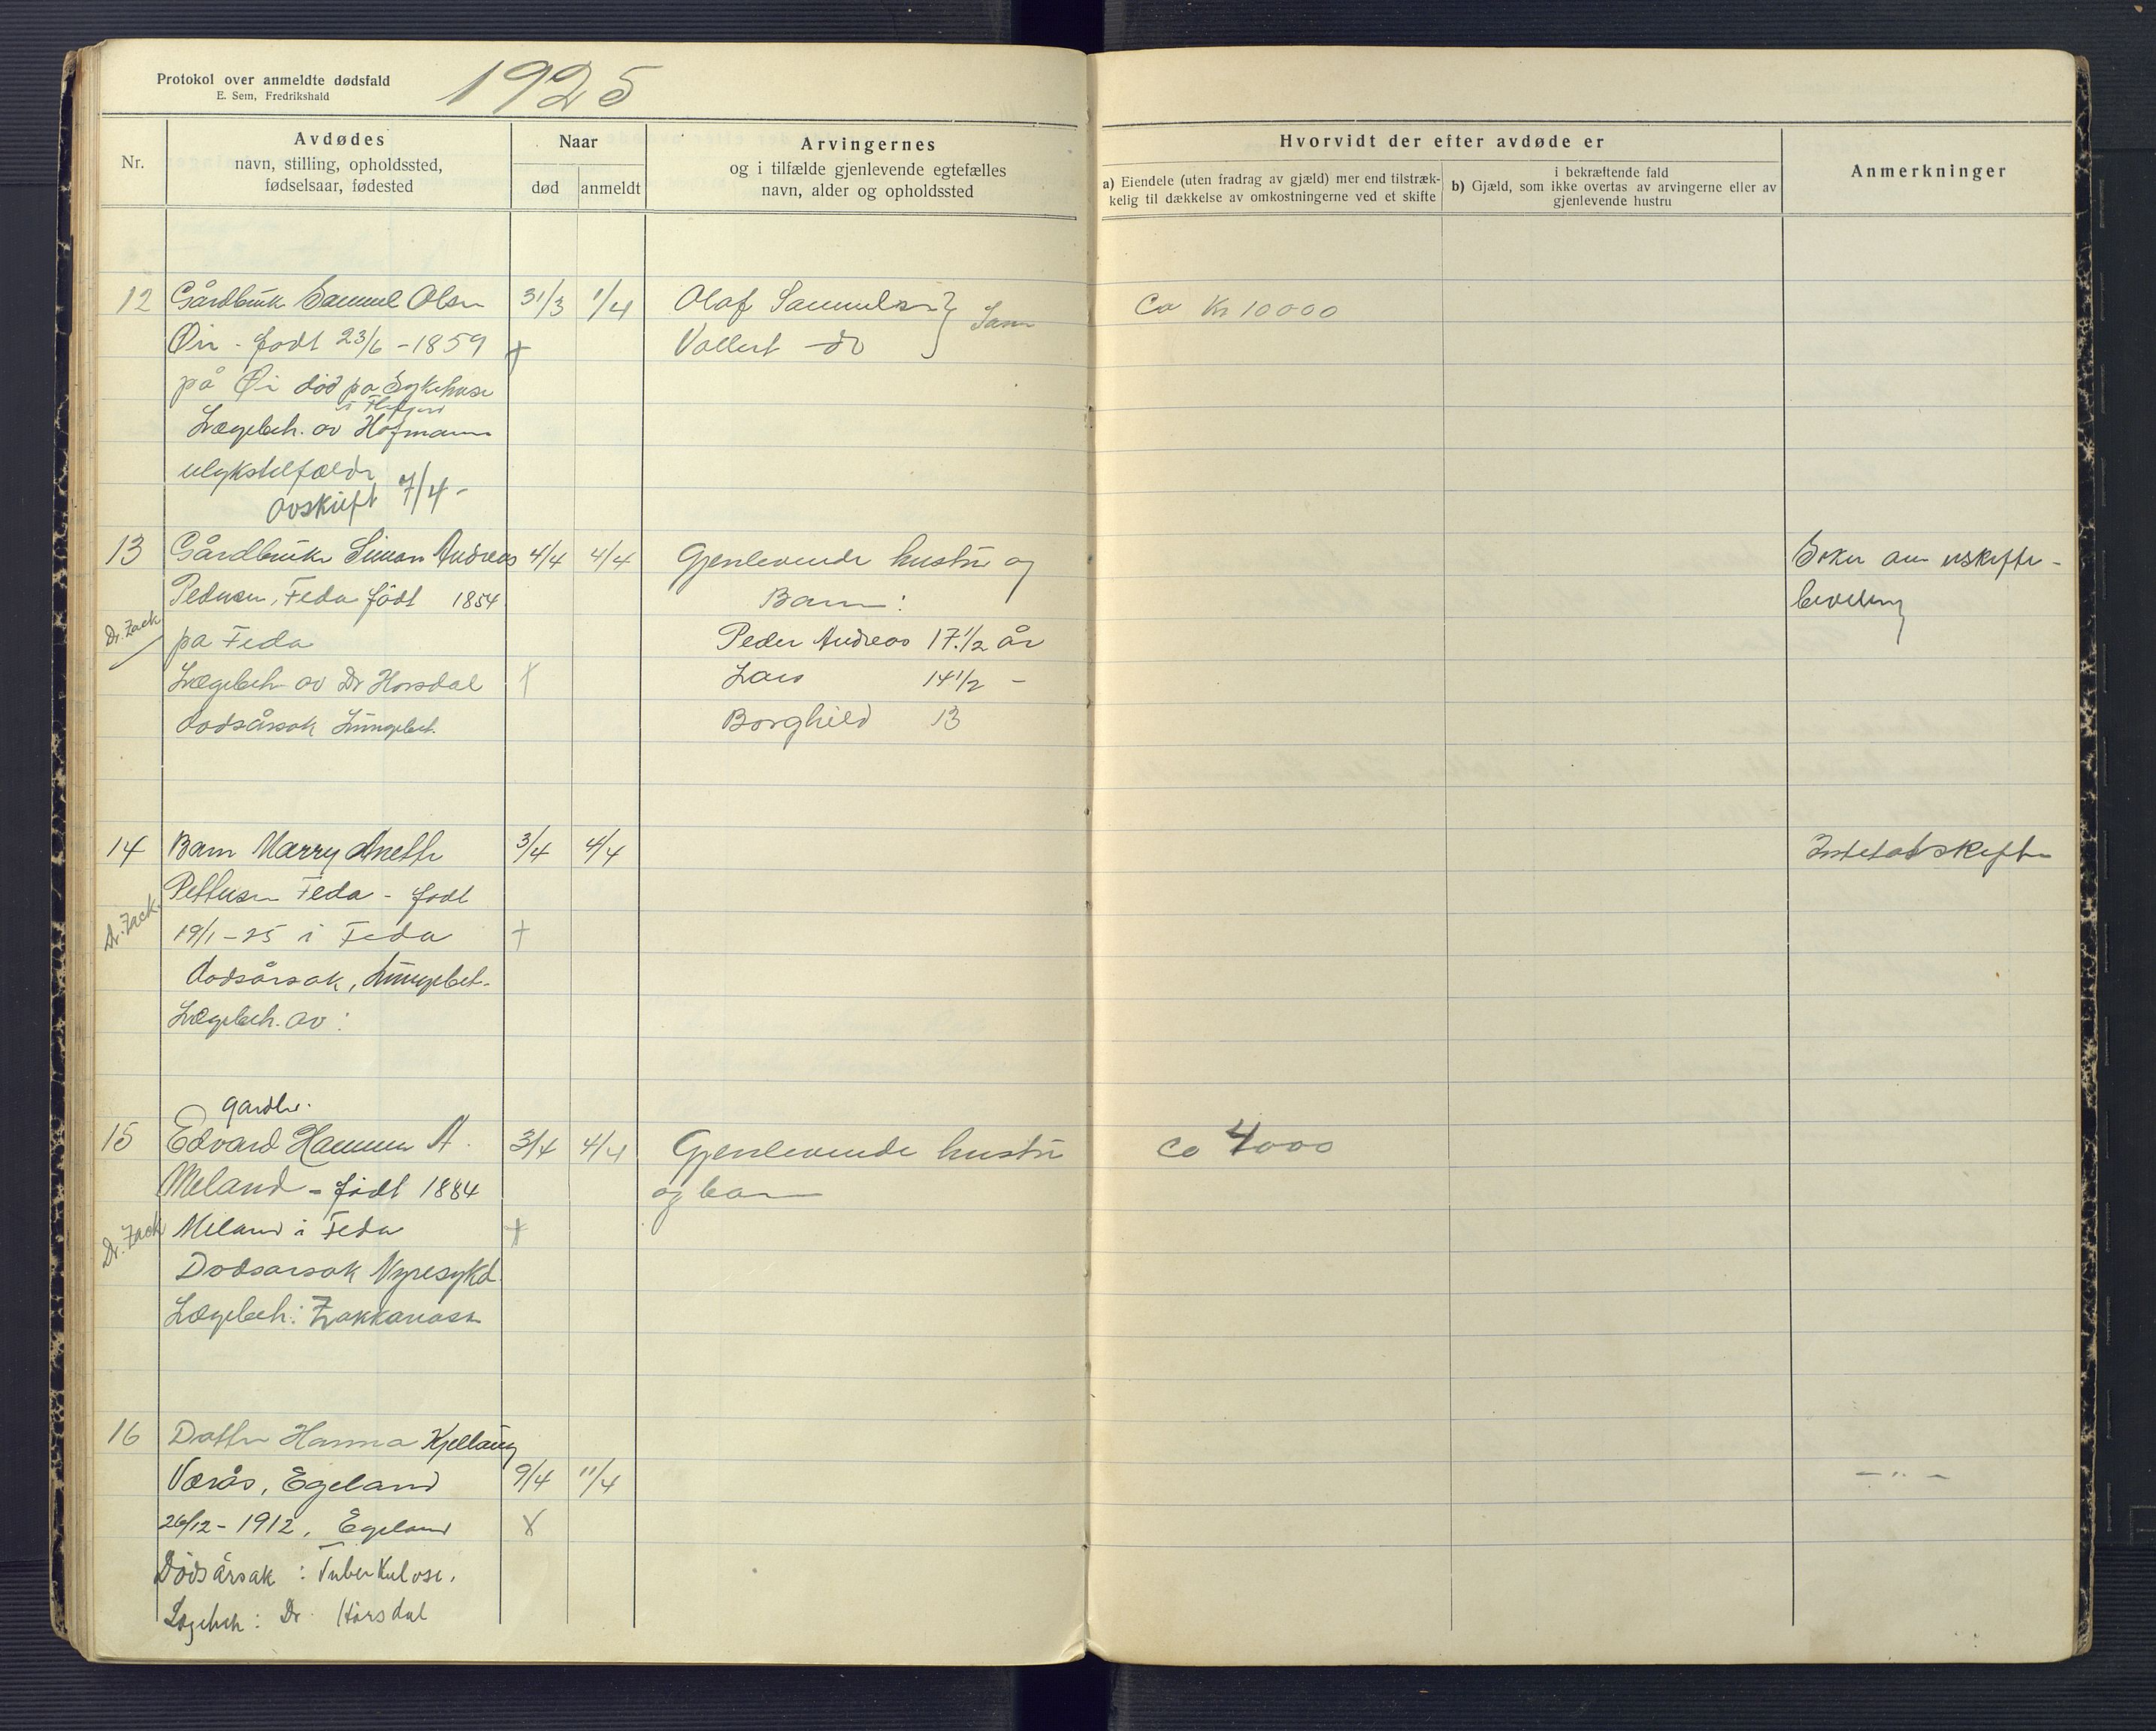 Protokol over anmeldte dødsfald
E. Sem, Fredrikshald
1925
Nr.
Avdødes
navn, stilling, opholdssted,
fødselsaar, fødested
Naar
død
anmeldt
Arvingernes
og i tilfælde gjenlevende egtefælles
navn, alder og opholdssted
Hvorvidt der efter avdøde er
a) Eiendele (uten fradrag av gjæld) mer end tilstræk-
kelig til dækkelse av omkostningerne ved et skifte
i bekræftende fald
b) Gjæld, som ikke overtas av arvingerne eller av
gjenlevende hustru
Anmerkninger
12 Gårdbruk Samuel Olsen 31/3 1/4 Olaf Samuelsen } Ca Kr 10000
Øie - født 23/6 - 1859 + Vollert do
på Øie død på Sykehuse
i
Lægebeh. av Hofmann
ulykstilfælde
avskrift 7/4 -
13 Gårdbruker Simon Andreas 4/4 4/4 Gjenlevende hustru og Søker om uskifte-
Pedersen, Feda født 1854 Barn: bevilling
Dr. Zack
på Feda Peder Andreas 17 1/2 år
Lægebeh av Dr Horsdal + Lars 14 1/2 -
dødsårsak Lungebet. Borghild 13
14 Barn Marry Anette 3/4 4/4 Intetatskifte
Pettersen Feda - født
Dr. Zack.
19/1 - 25 i Feda +
dødsårsak, Lungebet.
Lægebeh. av:
gardbr.
15 Edvard Hammen A. 3/4 4/4 Gjenlevende hustru Ca 4000
Meland - født 1884 og barn
Dr. Zack
Meland i Feda +
Dødsarsak Nyresykd
Lægebeh: Zakkariasen
16 Datter Hanna Kjellaug
Værås, Egeland 9/4 11/4 - " -
26/12 - 1912, Egeland x
Dødsårsak : Tuberkulose.
Lægebeh : Dr. Hårsdal